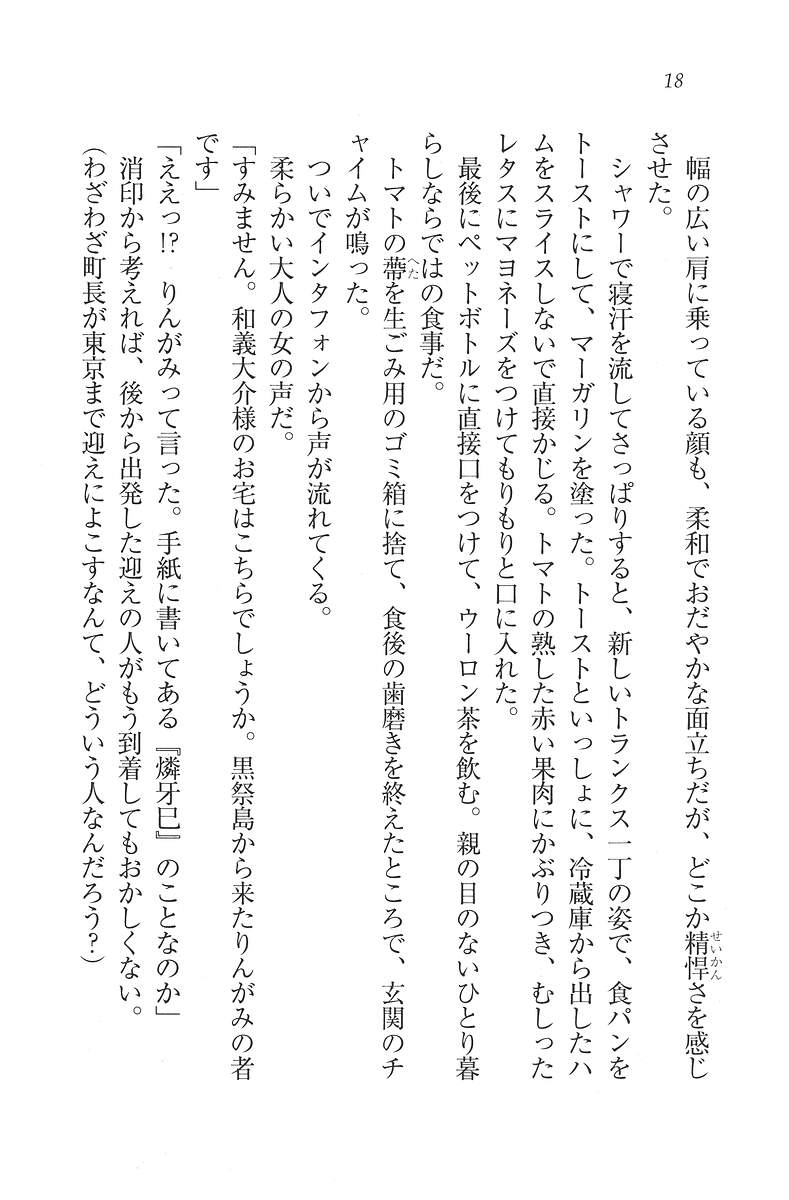 18
幅の広い肩に乗っている顔も、柔和でおだやかな面立ちだが、どこか精悍さを感じ
せいかん
させた。
シャワーで寝汗を流してさっぱりすると、新しいトランクス一丁の姿で、食パンを
トーストにして、マーガリンを塗った。トーストといっしょに、冷蔵庫から出したハ
ムをスライスしないで直接かじる。トマトの熟した赤い果肉にかぶりつき、むしった
レタスにマヨネーズをつけてもりもりと口に入れた。
最後にペットボトルに直接口をつけて、ウーロン茶を飲む。親の目のないひとり暮
らしならではの食事だ。
トマトの蔕を生ごみ用のゴミ箱に捨て、食後の歯磨きを終えたところで、玄関のチ
へた
ャイムが鳴った。
ついでインタフォンから声が流れてくる。
柔らかい大人の女の声だ。
「すみません。和義大介様のお宅はこちらでしょうか。黒祭島から来たりんがみの者
です」
「ええっ!?　りんがみって言った。手紙に書いてある『燐牙巳』のことなのか」
消印から考えれば、後から出発した迎えの人がもう到着してもおかしくない。
（わざわざ町長が東京まで迎えによこすなんて、どういう人なんだろう？）